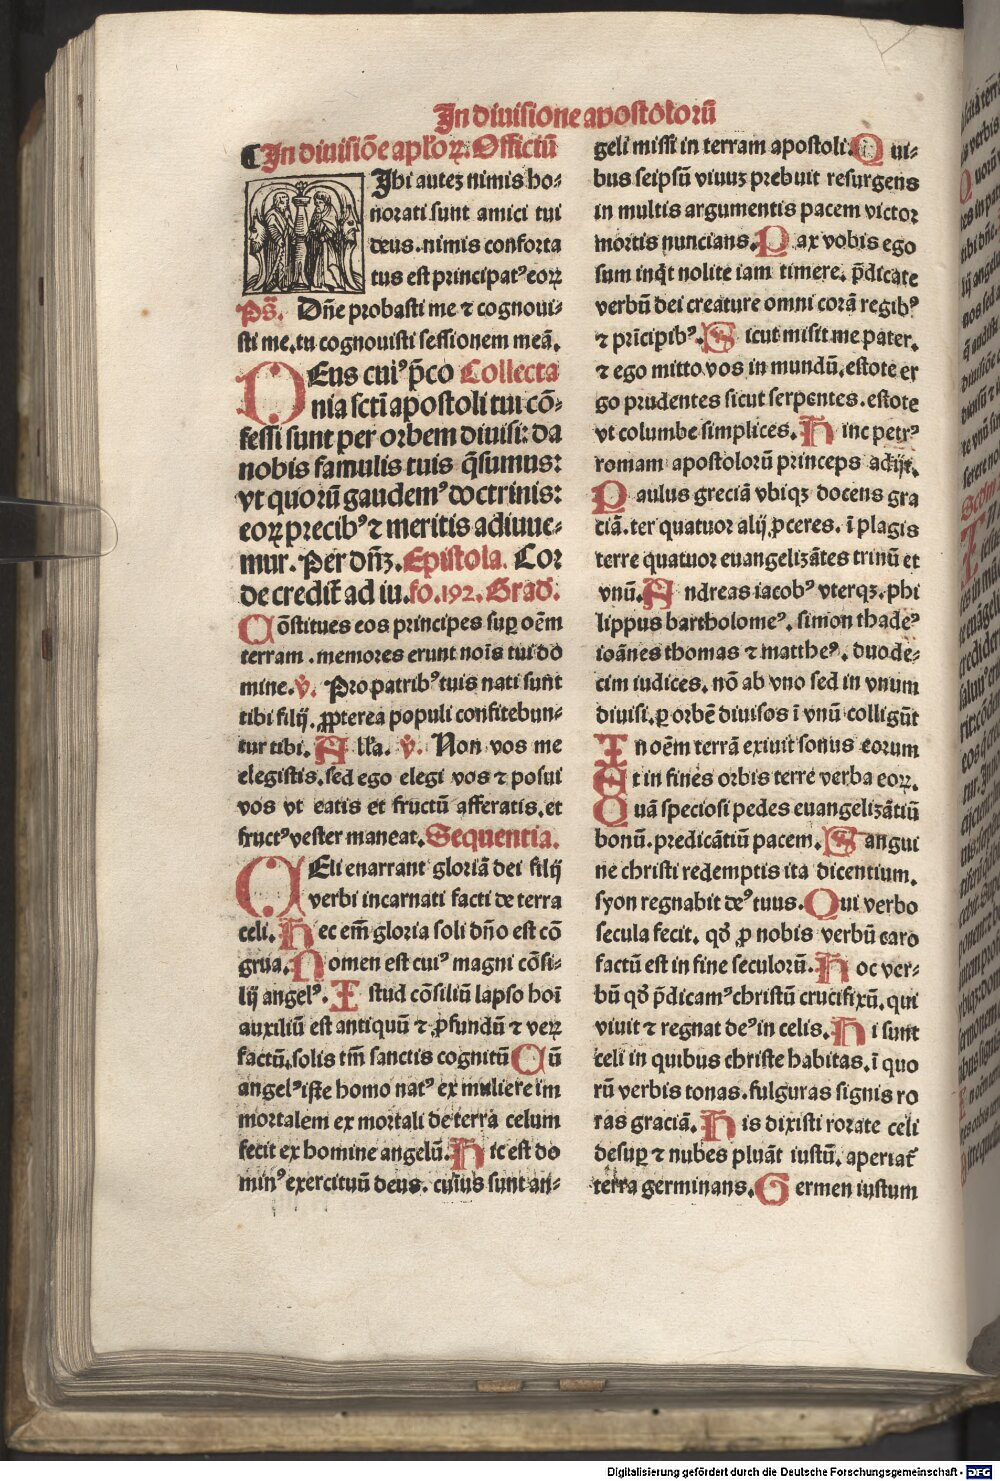 In diuisione apostolorū
¶In diuisiōe apl'oꝝ. Officiū
Ihi auteȝ nimis ho⸗
norati sunt amici tui
deus. nimis conforta
tus est principatꝰ eoꝝ
Ps̄. Dn̄e probasti me ⁊ cognoui⸗
sti me. tu cognouisti sessionem meā.
DEus cuiꝰ p̄co Collecta
nia sct̄i apostoli tui cō⸗
fessi sunt per orbem diuisi: da
nobis famulis tuis q̄sumus:
vt quorū gaudemꝰ doctrinis:
eoꝝ precibꝰ ⁊ meritis adiuue⸗
mur. Per dn̄ȝ. Epistola. Cor
de credit̄ ad iu. fo. 192. Grad̄.
Cōstitues eos principes suꝑ oēm
terram . memores erunt nōis tui do
mine. v̄. Pro patribꝰ tuis nati sunt
tibi filij. ꝓpterea populi confitebun⸗
tur tibi. All'a. v̄. Non vos me
elegistis. sed ego elegi vos ⁊ posui
vos vt eatis et fructū afferatis. et
fructꝰ vester maneat. Sequentia.
CEli enarrant gloriā dei filij
verbi incarnati facti de terra
celi. Hec em̄ gloria soli dn̄o est cō
grua. Nomen est cuiꝰ magni cōsi⸗
lij angelꝰ. Istud cōsiliū lapso hoī
auxiliū est antiquū ⁊ ꝓfundū ⁊ veꝝ
factū. solis tm̄ sanctis cognitū Cū
angelꝰ iste homo natꝰ ex muliere im
mortalem ex mortali de terra celum
fecit ex homine angelū. Hic est do
minꝰ exercituū deus. cuius sunt an⸗
geli missi in terram apostoli. Qui⸗
bus seipsū viuuȝ prebuit resurgens
in multis argumentis pacem victor
mortis nuncians. Pax vobis ego
sum inqt nolite iam timere. p̄dicate
verbū dei creature omni corā regibꝰ
⁊ prīcipibꝰ. Sicut misit me pater.
⁊ ego mitto vos in mundū. estote er
go prudentes sicut serpentes. estote
vt columbe simplices. Hinc petrꝰ
romam apostolorū princeps adijt.
Paulus greciā vbiqȝ docens gra
ciā. ter quatuor alij ꝓceres. ī plagis
terre quatuor euangelizātes trinū et
vnū. Andreas iacobꝰ vterqȝ. phi
lippus bartholomeꝰ. simon thadeꝰ
ioānes thomas ⁊ mattheꝰ. duode⸗
cim iudices. nō ab vno sed in vnum
diuisi. ꝑ orbē diuisos ī vnū colligūt
In oēm terrā exiuit sonus eorum
Et in fines orbis terre verba eoꝝ.
Quā speciosi pedes euangelizātiū
bonū. predicātiū pacem. Sangui
ne christi redemptis ita dicentium.
syon regnabit deꝰ tuus. Qui verbo
secula fecit. qd̄ ꝓ nobis verbū caro
factū est in fine seculorū. Hoc ver⸗
bū qd̄ p̄dicamꝰ christū crucifixū. qui
viuit ⁊ regnat deꝰ in celis. Hi sunt
celi in quibus christe habitas. ī quo
rū verbis tonas. fulguras signis ro
ras graciā. His dixisti rorate celi
desuꝑ ⁊ nubes pluāt iustū. aperiat̄
terra germinans. Germen iustum
Digitalisierung gefördert durch die Deutsche Forschungsgemeinschaft - DFG